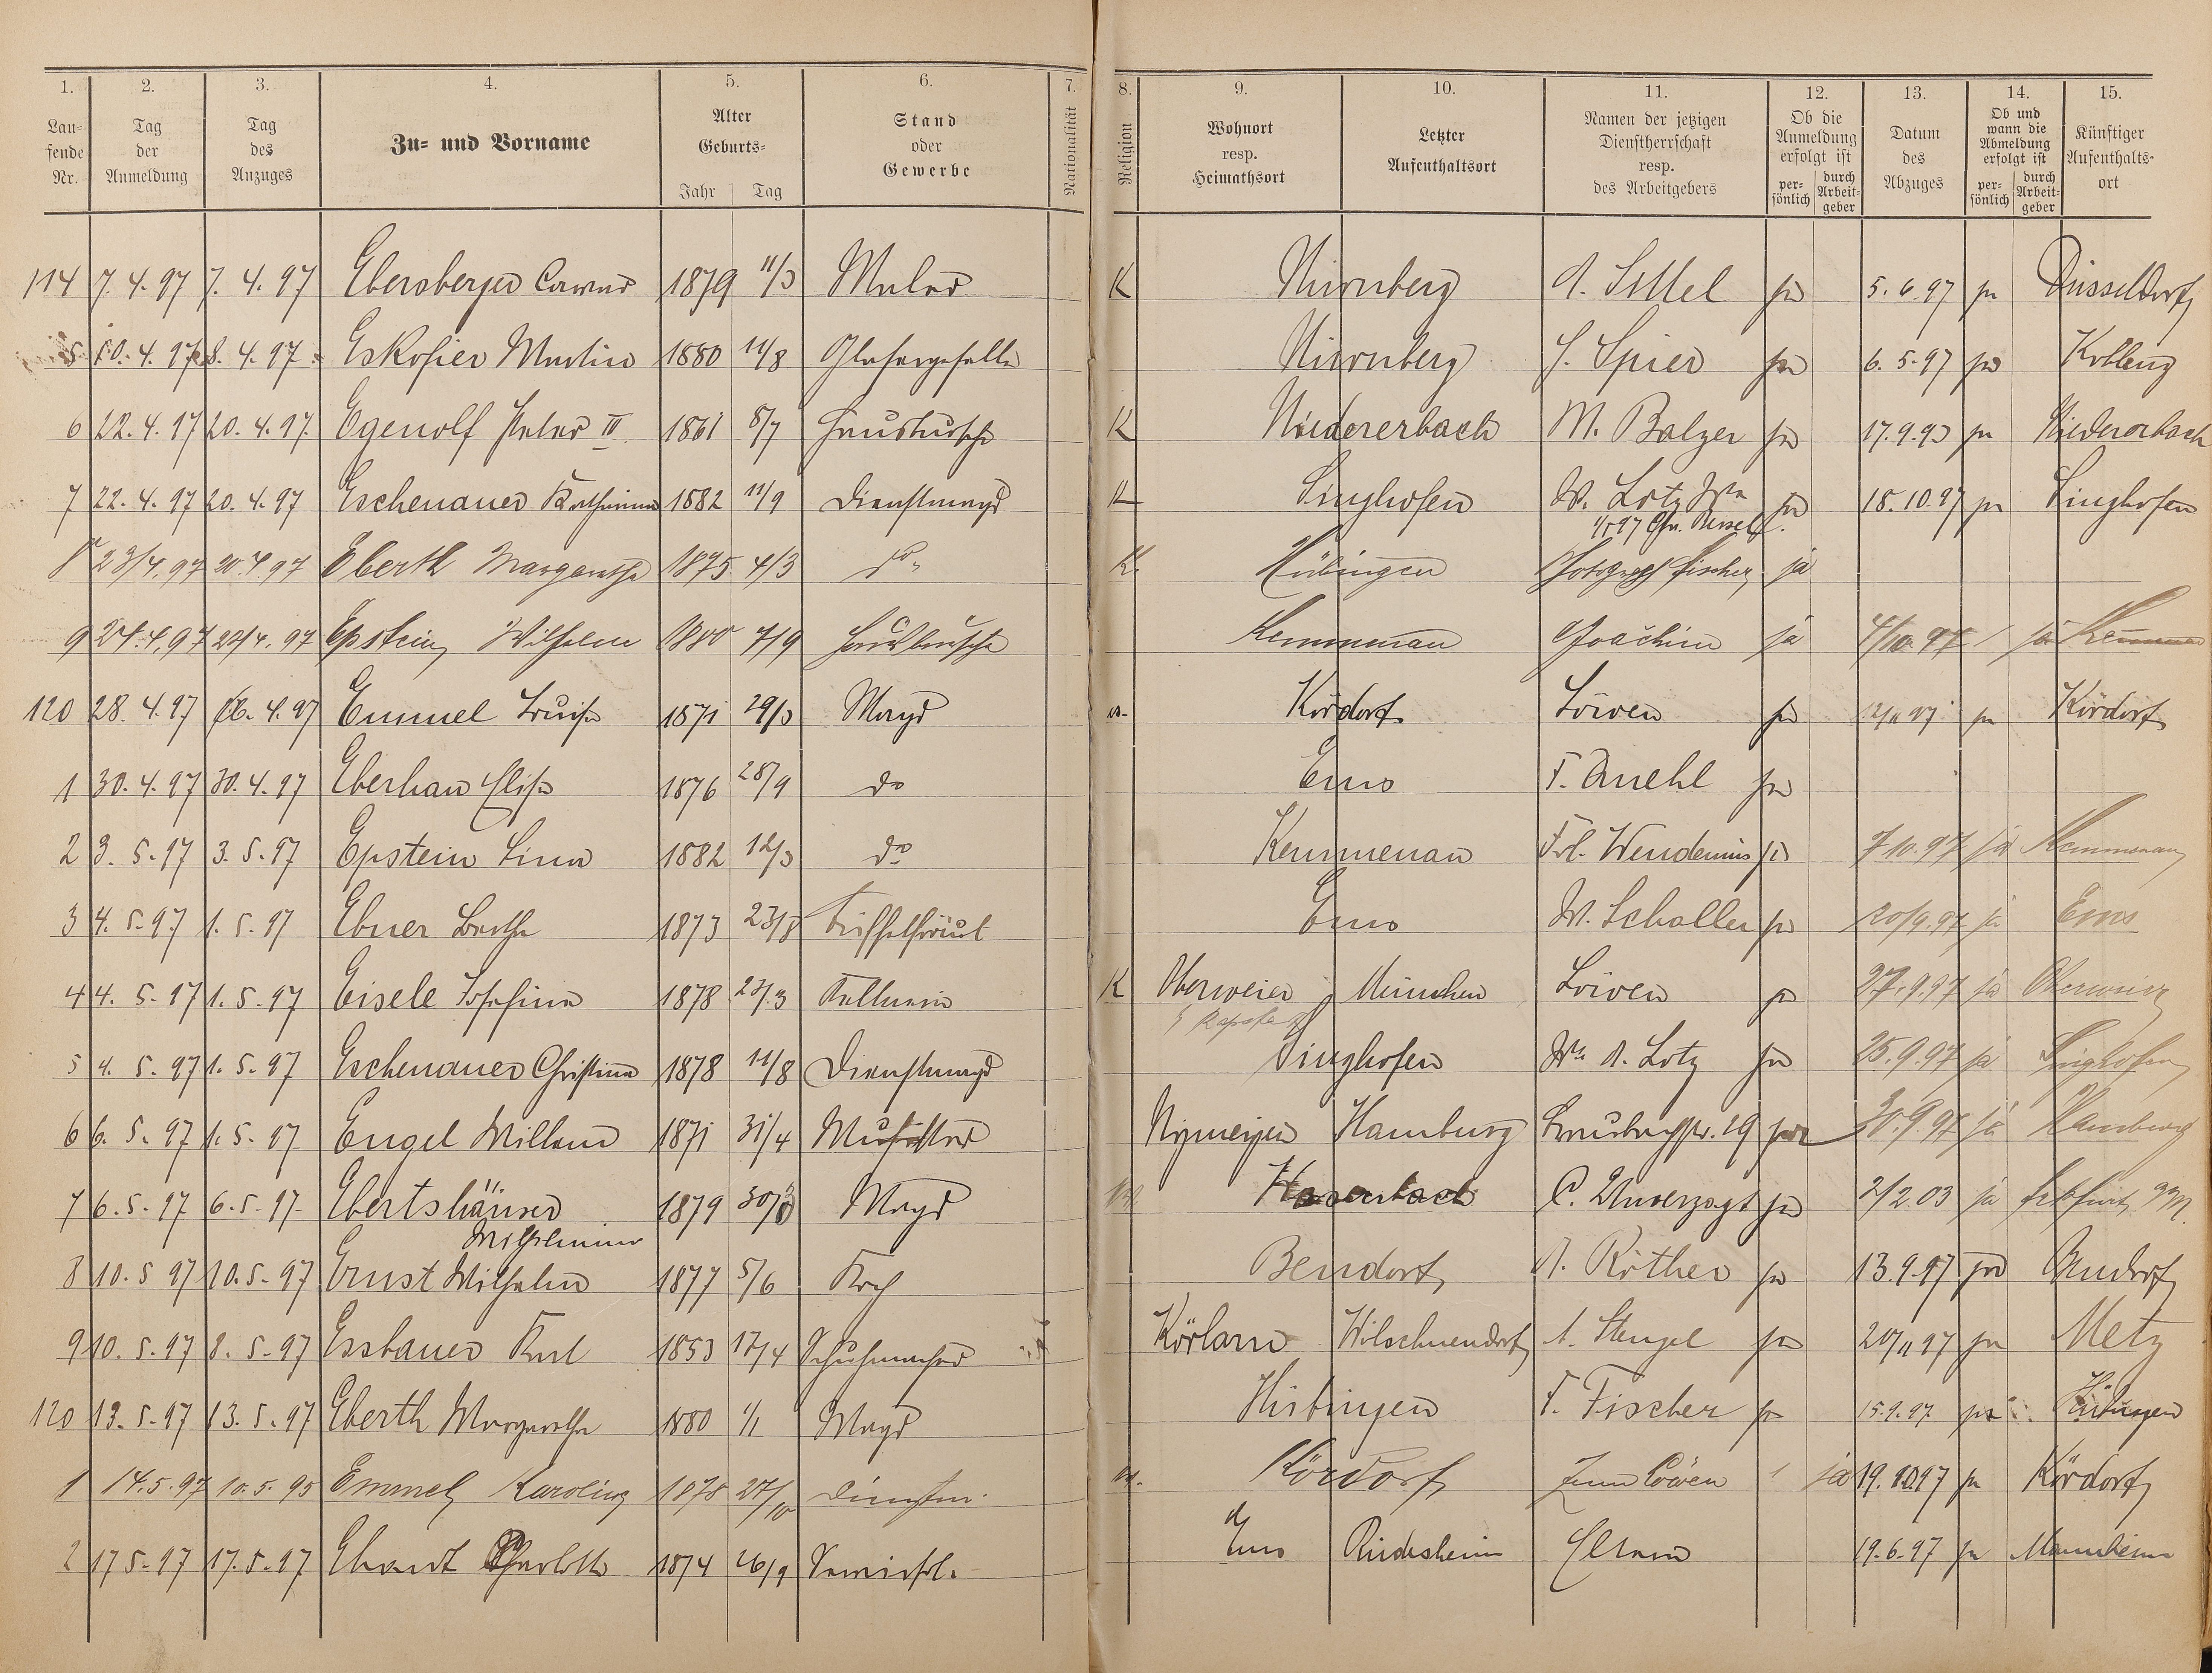 1. 2. 3. 4. 5. 6. 7. 8. 9. 10. 11. 12. 13. 14. 15.
Lau-
fende
Nr.
Tag
der
Anmeldung
Tag
des
Anzuges
Zu- und Vorname
Alter
Geburts-
Jahr Tag
Stand
oder
Gewerbe
Nationalität
Religion
Wohnort
resp.
Heimathsort
Letzter
Aufenthaltsort
Namen der jetzigen
Dienstherrschaft
resp.
des Arbeitgebers
Ob die
Anmeldung
erfolgt ist
per-
sönlich
durch
Arbeit-
geber
Datum
des
Abzuges
Ob und
wann die
Abmeldung
erfolgt ist
per-
sönlich
durch
Arbeit-
geber
Künftiger
Aufenthalts-
ort
114 7. 4. 97 7. 4. 97 Ebersberger 1879 11/3 Maler K Nürnberg A. Sittel ja 5. 6. 97 ja Düsseldorf
5 10. 4. 97 8. 4. 97 Eskofier Martin 1880 11/8 Glasergeselle Nürnberg J. Spier ja 6. 5. 97 ja Koblenz
6 22. 4. 97 20. 4. 97. Egenolf Peter III 1861 8/7 Hausbursche K Niedererbach M. Balzer ja 17. 9. 97 ja Niedererbach
7 22. 4. 97 20. 4. 97 Eschenauer Katharina 1882 11/9 Dienstmagd K Singhofen W. Lotz Ww ja 18. 10. 97 ja Singhofen
8 23/4. 97 20. 4. 97 Eberth Margarethe 1875 4/3 do K Hübingen Photograph Fischer ja
9 24. 4. 97 22/4. 97 Epstein Wilhelm 1880 7/9 Hausbursche Kemmenau Joachim ja 4/10. 97 ja Kemmenau
120 28. 4. 97 26. 4. 97 Emmel Luise 1871 29/3 Magd Kördorf Löwen ja ja Kördorf
1 30. 4. 97 30. 4. 97 Eberhan Elise 1876 28/9 do Ems ja
2 3. 5. 97 3. 5. 97 Epstein Lina 1882 12/3 do Kemmenau Frl. Wendenius ja 7 10. 97 ja Kemmenau
3 4. 5. 97 1. 5. 97 Ebner Bertha 1873 23/8 Büffetfräul Ems W. Schaller ja 20/9. 97 ja Ems
4 4. 5. 97 1. 5. 97 Eisele Josefine 1878 23/3 Kellnerin K Oberweier München Löwen ja 27. 9. 97 ja Oberweier
5 4. 5. 97 1. 5. 97 Eschenauer Christina 1878 11/8 Dienstmagd Singhofen Ww A. Lotz ja 25. 9. 97 ja Singhofen
6 6. 5. 97 1. 5. 97 Engel Willem 1871 31/4 Nymeijen Hamburg 19 ja 30. 9. 97 ja Hamburg
7 6. 5. 97 6. 5. 97 Ebertshäuser 1879 Magd C. Unverzagt ja 2/2. 03 ja Frkfurt a/M.
Wilhelmine
8 10. 5 97 10. 5. 97 Ernst Wilhelm 1877 5/6 Koch Bendorf A. Röther ja 13. 9. 97 ja Bendorf
9 10. 5. 97 8. 5. 97 Essbauer Karl 1853 17/4 Schuhmacher A. Stengel ja 20/11 97 ja Metz
120 13. 5. 97 13. 5. 97 Eberth Margarethe 1880 1/1 Magd Hübingen F. Fischer ja 15. 9. 97 ja Hübingen
1 14. 5. 97 10. 5. 95 Emmel Karoline 1878 27/10 Dienstm. Kördorf Zum Löwen ja 19. 10. 97 ja Kördorf
2 17 5. 97 17. 5. 97 Charlotte 1874 26/9 Ems Rüdesheim Eltern 19. 6. 97 ja Mannheim